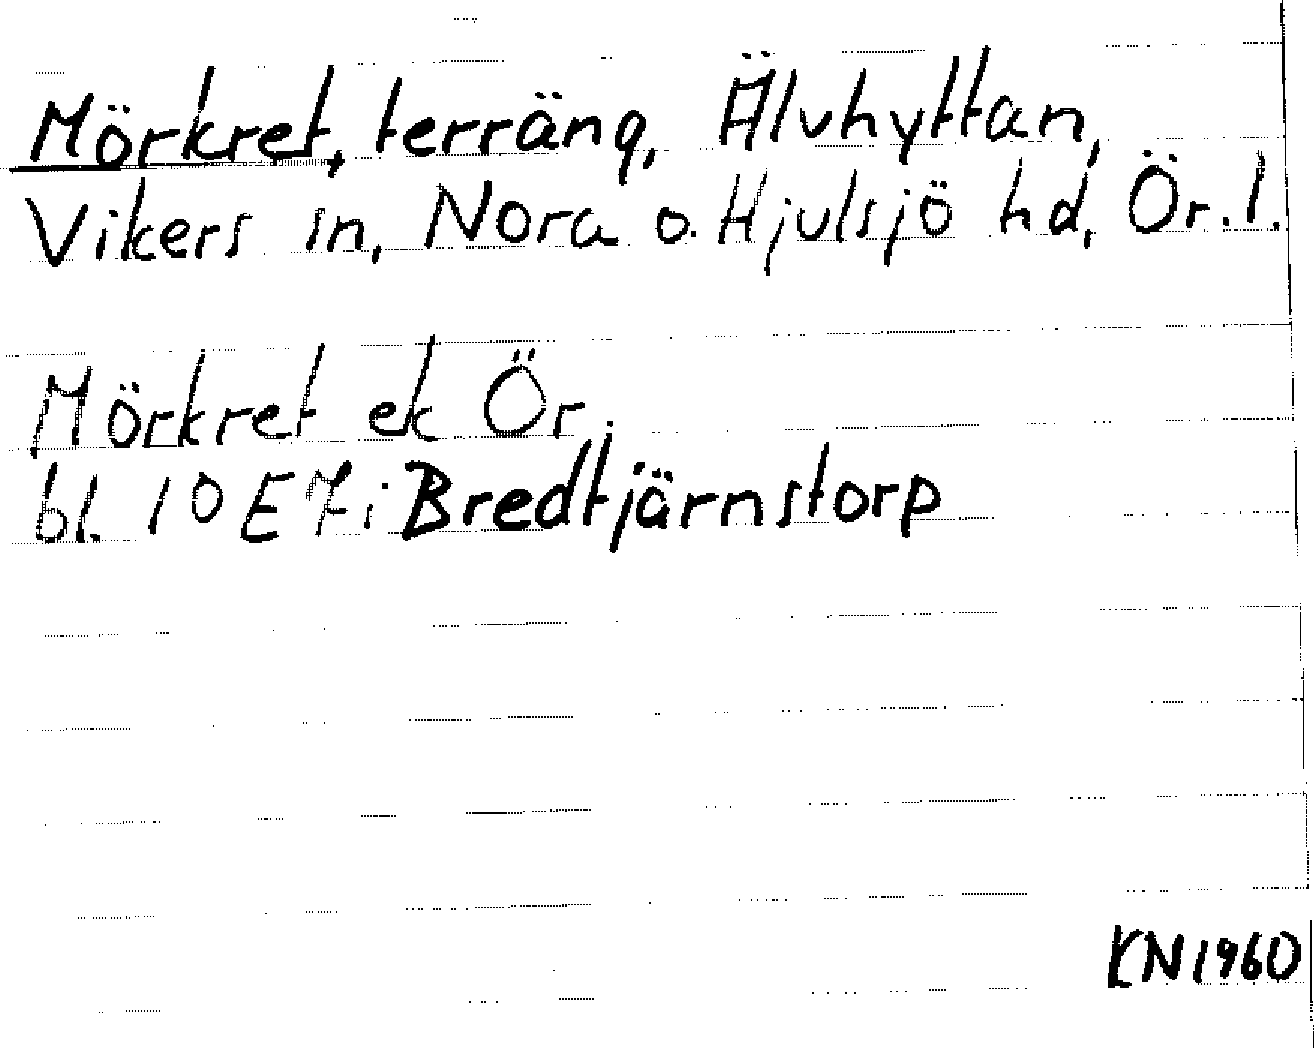 Mörkret, terräng, Älvhyttan,
Vikers sn, Nora o. Hjulsjö hd, Ör. l.
Mörkret ek Ör.
bl. 10E 7i Bredtjärnstorp
KN 1960